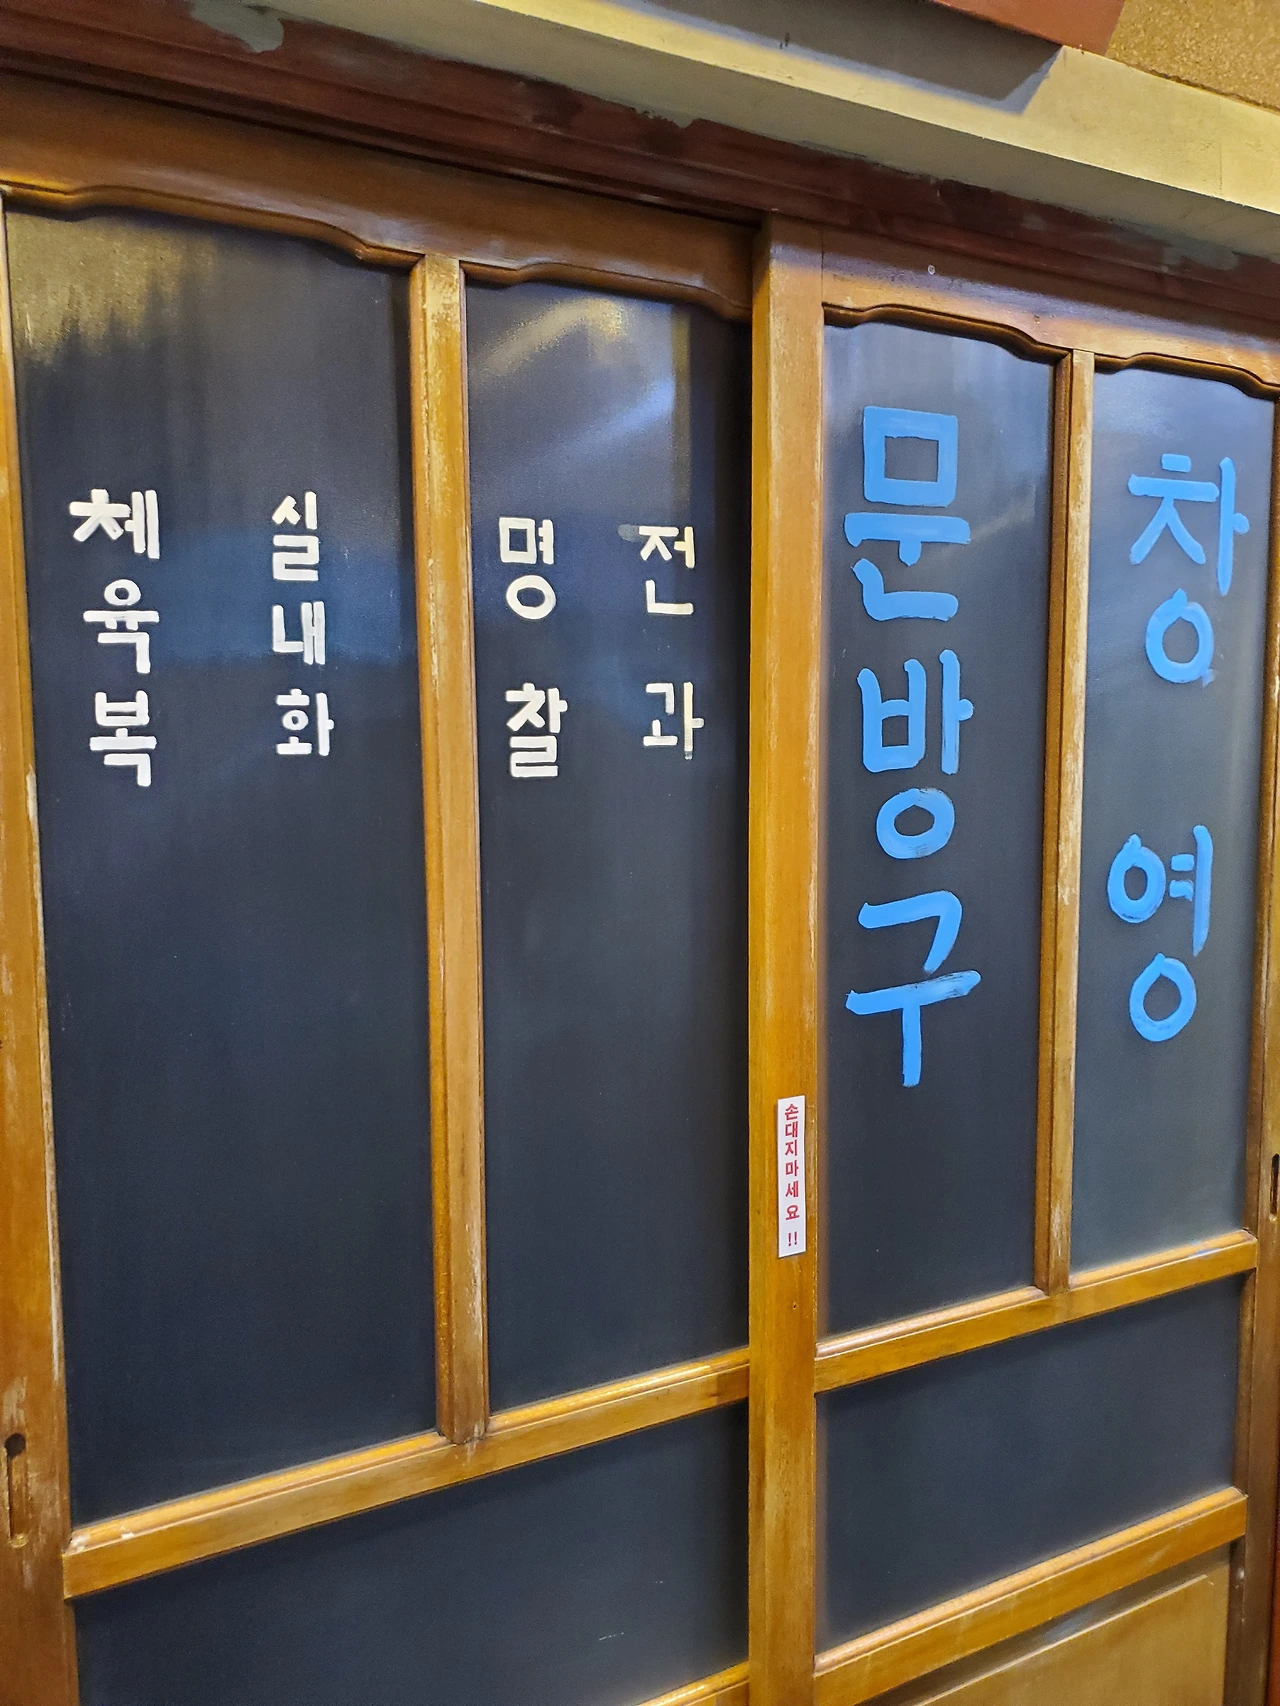 창영
문방구
전과
명찰
실내화
체육복
손대지마세요!!